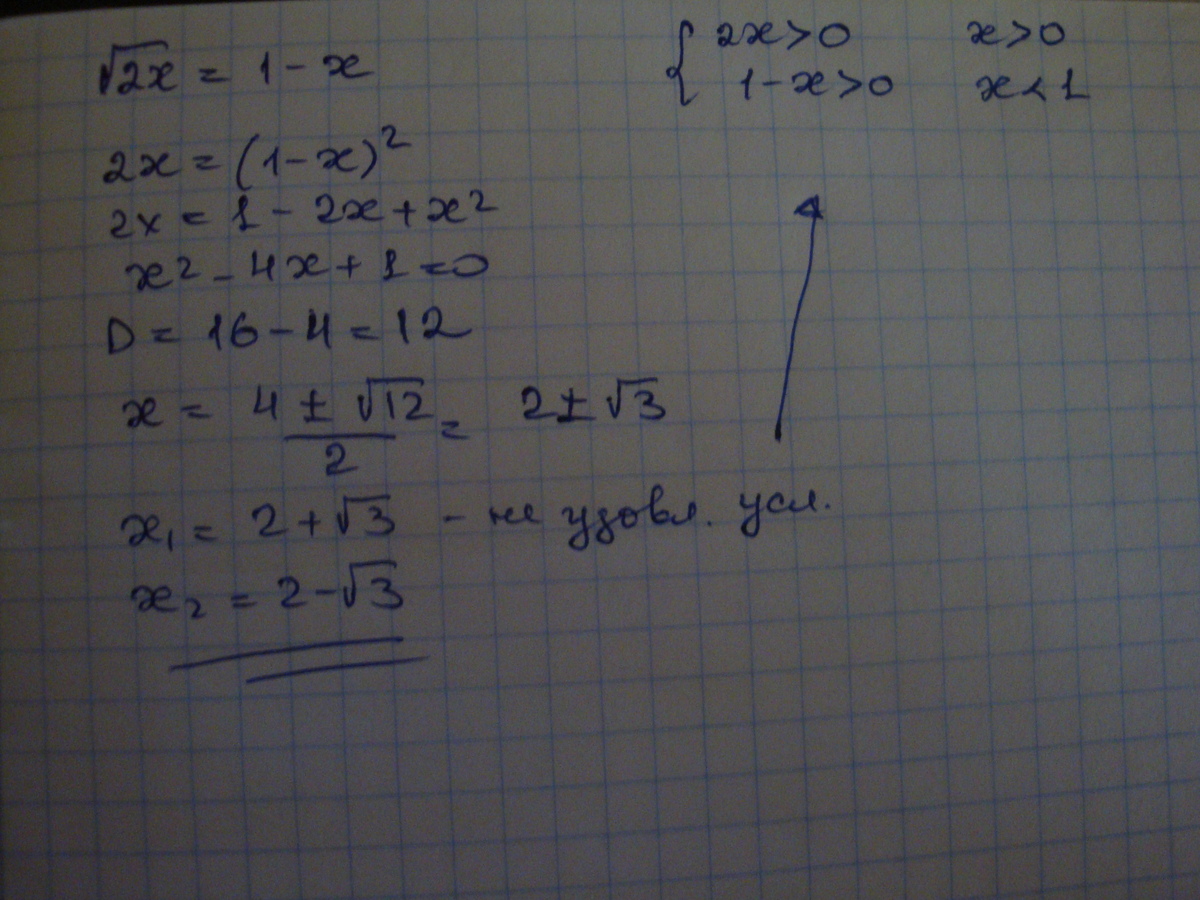 √2x = 1 - x
{ 2x > 0 x > 0
1 - x > 0 x < 1
2x = (1 - x)²
2x = 1 - 2x + x²
x² - 4x + 1 = 0
D = 16 - 4 = 12
x = (4 ± √12)/2 = 2 ± √3
x₁ = 2 + √3 - не удовл. усл.
x₂ = 2 - √3